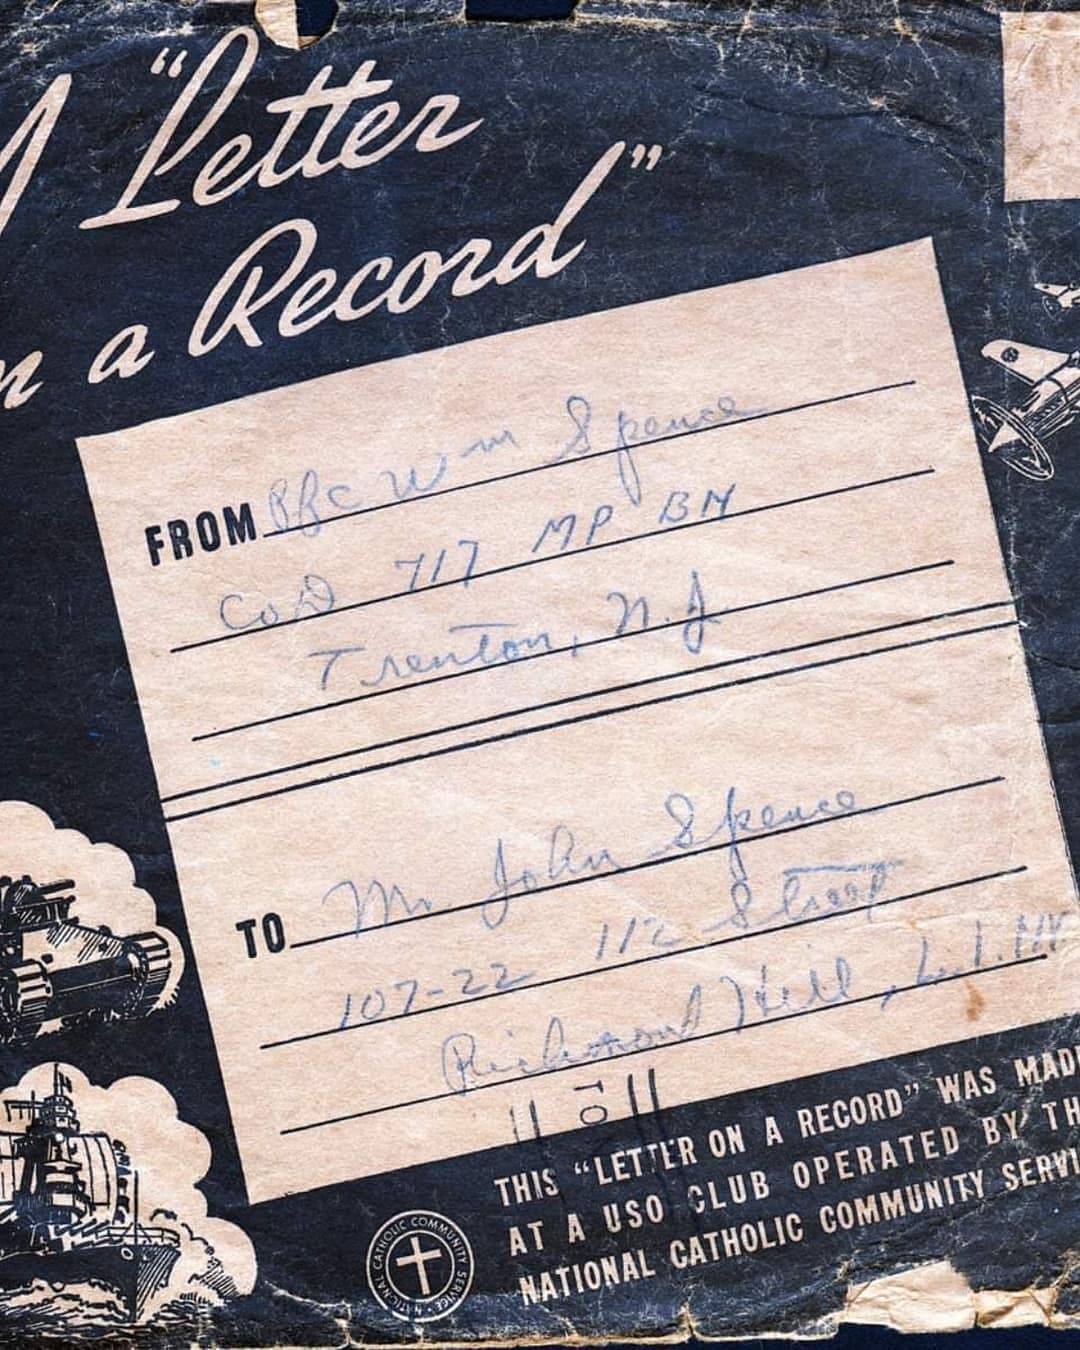 A "Letter
on a Record"
FROM Pfc Wm Spence
Co D 717 MP BN
Trenton, N.J
TO Mr. John Spence
107-22 112 Street
Richmond Hill, L.I. NY
THIS "LETTER ON A RECORD" WAS MADE
AT A USO CLUB OPERATED BY THE
NATIONAL CATHOLIC COMMUNITY SERVICE
NATIONAL CATHOLIC COMMUNITY SERVICE